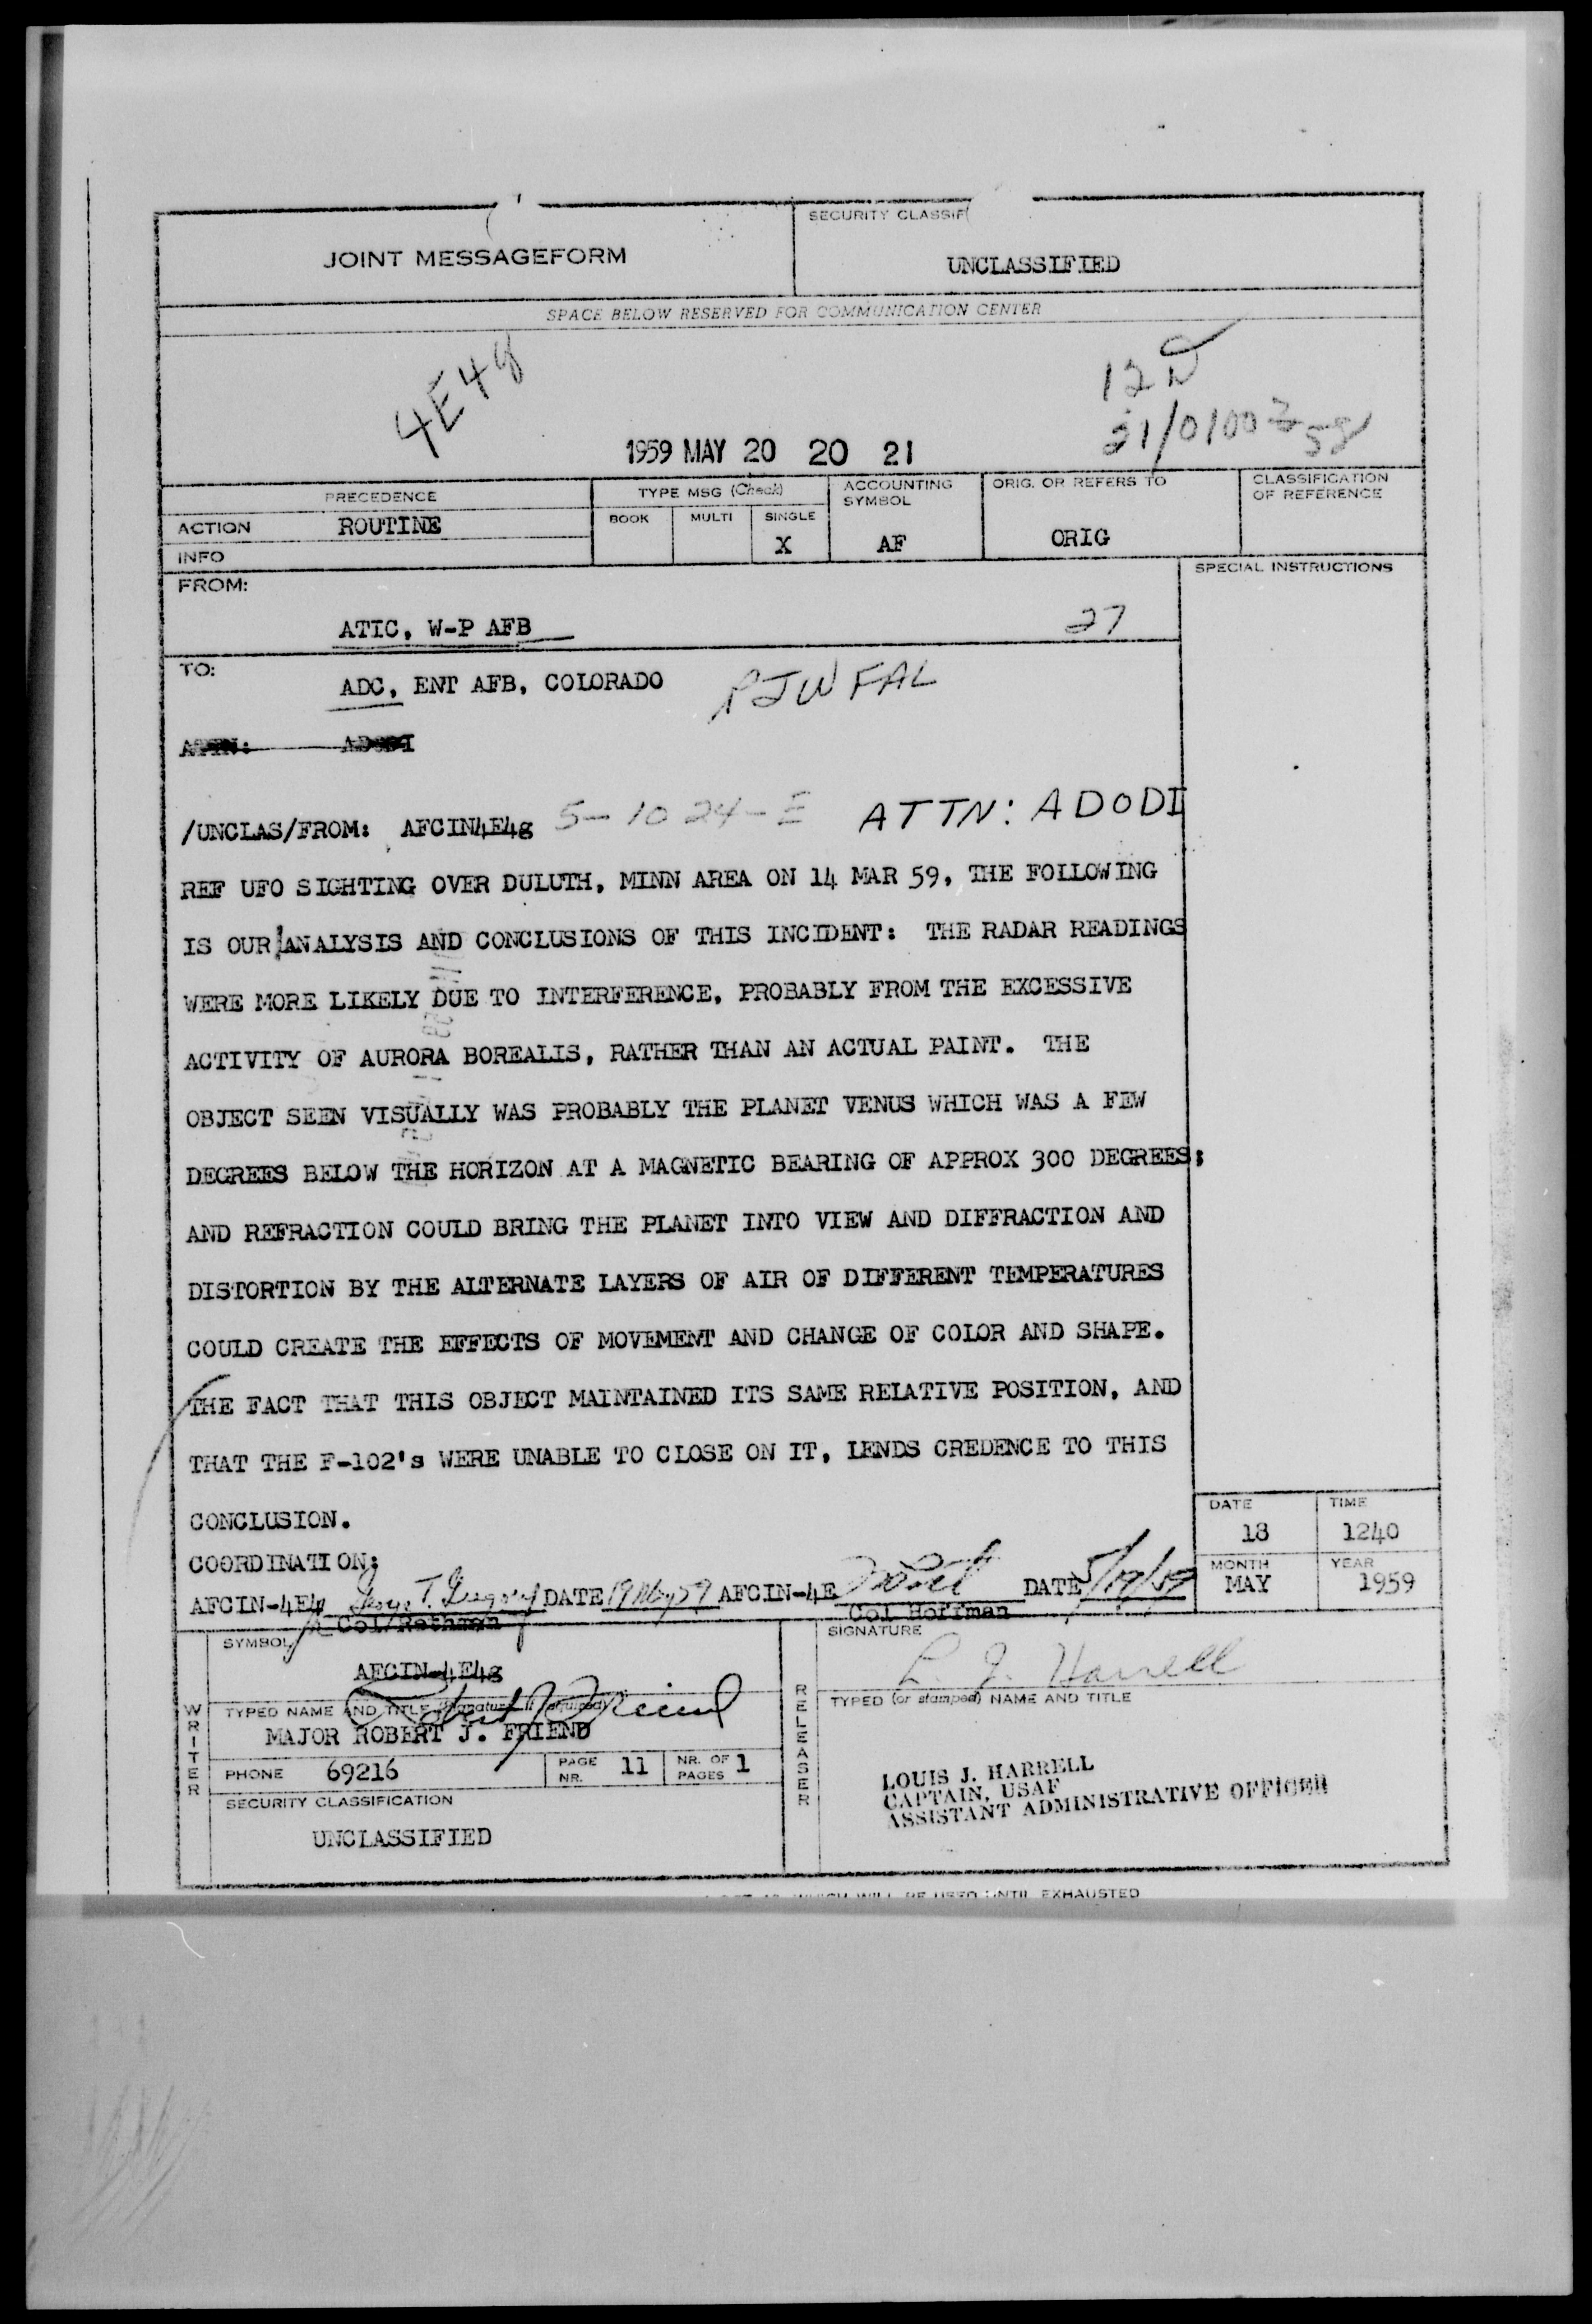 SECURITY CLASSIF
JOINT MESSAGEFORM
UNCLASSIFIED
SPACE BELOW RESERVED FOR COMMUNICATION CENTER
4E4g
1959 MAY 20 20 21
PRECEDENCE
TYPE MSG (Check)
ACCOUNTING SYMBOL
ORIG. OR REFERS TO
CLASSIFICATION OF REFERENCE
ACTION ROUTINE
BOOK MULTI SINGLE
X AF ORIG
INFO
FROM:
SPECIAL INSTRUCTIONS
ATIC, W-P AFB
27
TO:
ADC, ENT AFB, COLORADO
RJWFAL
/UNCLAS/FROM: AFCIN4E4g 5-1024-E ATTN: ADODI
REF UFO SIGHTING OVER DULUTH, MINN AREA ON 14 MAR 59, THE FOLLOWING
IS OUR ANALYSIS AND CONCLUSIONS OF THIS INCIDENT: THE RADAR READINGS
WERE MORE LIKELY DUE TO INTERFERENCE, PROBABLY FROM THE EXCESSIVE
ACTIVITY OF AURORA BOREALIS, RATHER THAN AN ACTUAL PAINT. THE
OBJECT SEEN VISUALLY WAS PROBABLY THE PLANET VENUS WHICH WAS A FEW
DEGREES BELOW THE HORIZON AT A MAGNETIC BEARING OF APPROX 300 DEGREES;
AND REFRACTION COULD BRING THE PLANET INTO VIEW AND DIFFRACTION AND
DISTORTION BY THE ALTERNATE LAYERS OF AIR OF DIFFERENT TEMPERATURES
COULD CREATE THE EFFECTS OF MOVEMENT AND CHANGE OF COLOR AND SHAPE.
THE FACT THAT THIS OBJECT MAINTAINED ITS SAME RELATIVE POSITION, AND
THAT THE F-102's WERE UNABLE TO CLOSE ON IT, LENDS CREDENCE TO THIS
CONCLUSION.
DATE TIME
18 1240
COORDINATION:
MONTH YEAR
MAY 1959
AFCIN-4E4 DATE 19 May 59 AFCIN-4E DATE 5/19/59
Col Hoffman
SYMBOL
SIGNATURE
AFCIN-4E4g
L. J. Harrell
WRITER
TYPED NAME AND TITLE (Signature, if required)
RELEASER
TYPED (or stamped) NAME AND TITLE
MAJOR ROBERT J. FRIEND
PHONE 69216 PAGE NR. 11 NR. OF PAGES 1
LOUIS J. HARRELL
CAPTAIN, USAF
ASSISTANT ADMINISTRATIVE OFFICER
SECURITY CLASSIFICATION
UNCLASSIFIED
WHICH WILL BE USED UNTIL EXHAUSTED